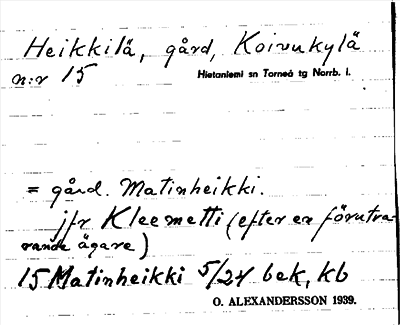 Heikkilä, gård, Koivukylä
n:r 15 Hietaniemi sn Torneå tg Norrb. l.
= gård. Matinheikki.
jfr Kleemetti (efter en förutva-
rande ägare)
15 Matinheikki 5/24 bek, kb
O. ALEXANDERSSON 1939.